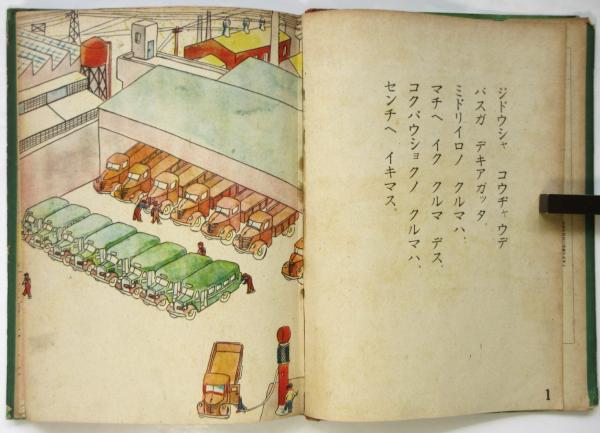 ジドウシャ コウヂャウデ
バスガ デキアガッタ、
ミドリイロノ クルマハ、
マチヘ イク クルマ デス、
コクバウショクノ クルマハ、
センチヘ イキマス。
1